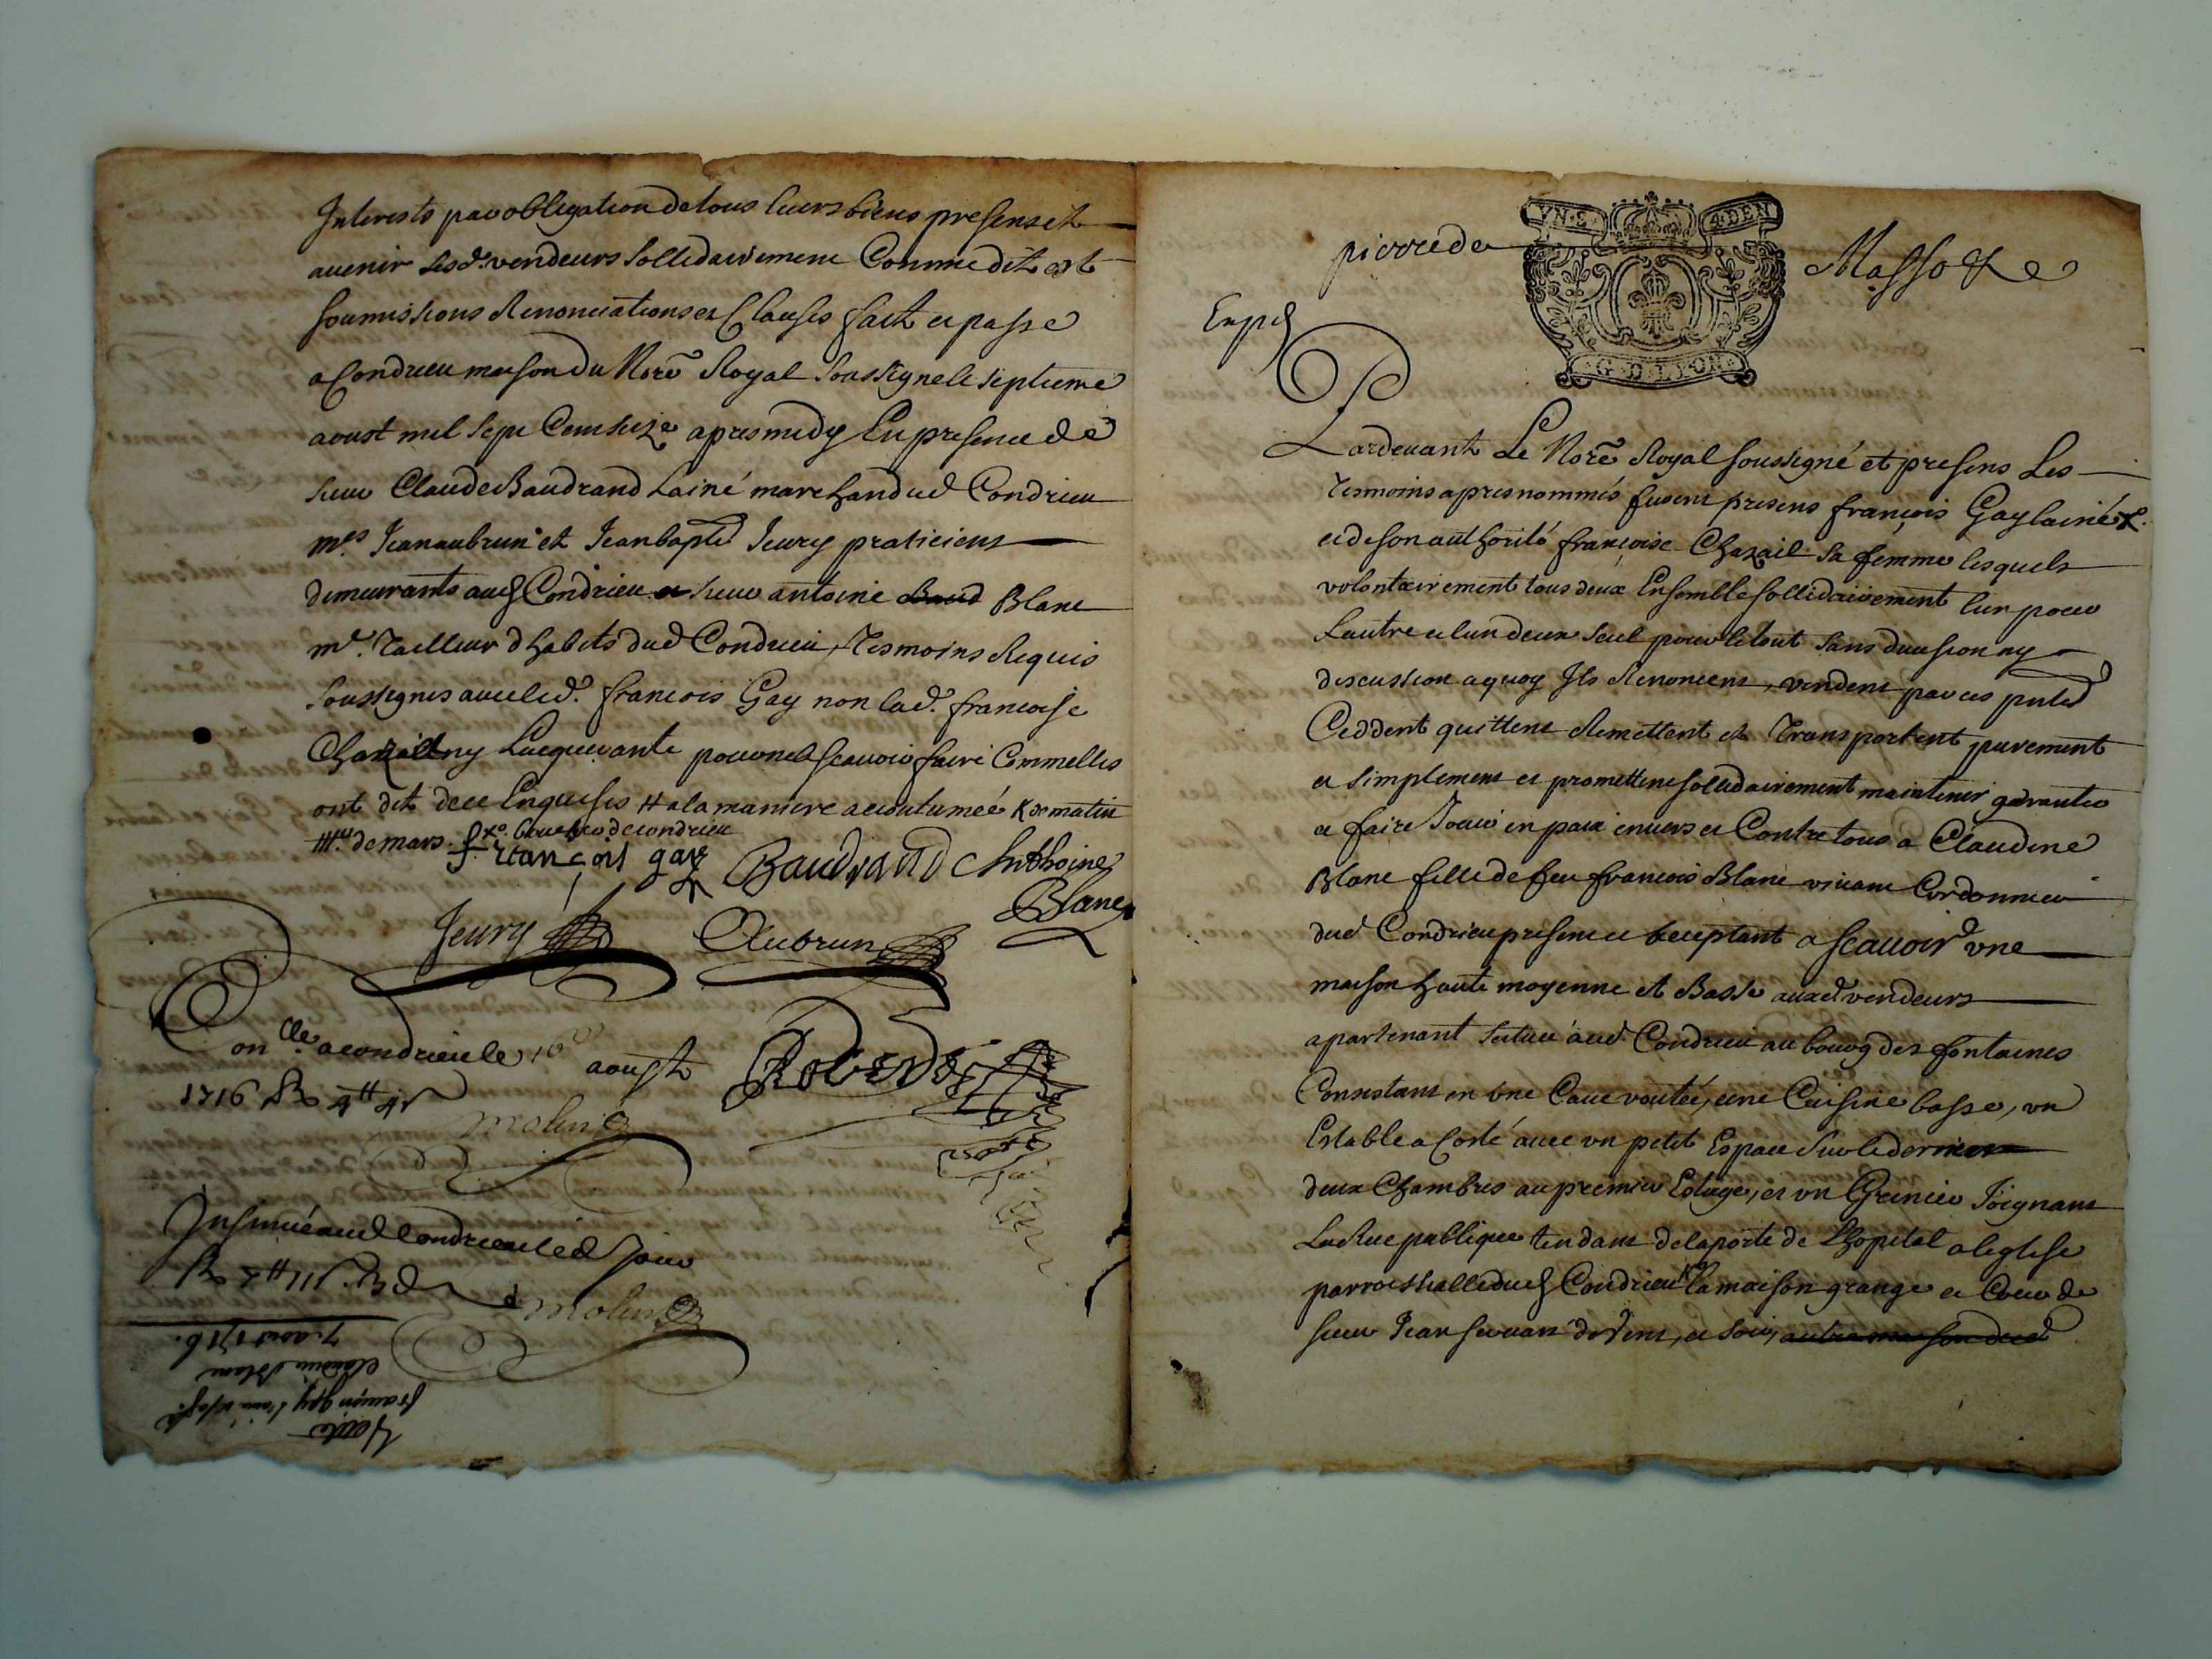 Interests par obligation de tous leurs biens presens et
auenir lesd. vendeurs sollidairement Comme dit est
soumissions Renonciations et Clauses fait et passé
a Condrieu maison du Nore Royal soussigné le septieme
aoust mil sept Cent seize apres midy En presence de
sieur Claude Baudrand Lainé marchand dud Condrieu
mes Jean aubrun et Jean bapte Jeury praticiens
demeurants aud Condrieu et sieur antoine Baud Blanc
md. Tailleur d'habits dud Condrieu, Tesmoins Requis
soussignés auec led. françois Gay non lad. françoise
Chazail ny Lacquerante pour ne scauoir faire Comme elles
ont dit de ce Enquises # a la maniere accoutumeé x matin
### de mars. x bourg de condrieu
françois gay Baudrand Anthoine
Blanc
Jeury Aubrun
Conlle a condrieu le 16e
aoust
1716 R 4# 4s
Robert
molin
Insinué aud Condrieu led Jour
molin
7. aout 1716.
claudine Blanc
françois gay l'ainé
Vente
YN·S· 4·DEN
pierre de Massotte
Exped
G·D·LYON
Pardeuant Le Nore Royal soussigné et presens Les
Tesmoins apres nommés furent presens françois Gay lainé x.
et de son authorité françoise Chazail sa femme lesquels
volontairement tous deux Ensemble sollidairement lun pour
Lautre et lun deux seul pour le tout sans diuision ny
discussion a quoy Ils Renoncent, vendent par ces pntes
Ceddent quittent Remettent et Transportent purement
et simplement et promettent sollidairement maintenir garantir
et faire Jouir en paix enuers et Contre tous a Claudine
Blanc fille de feu françois Blanc viuant Cordonnier
dud Condrieu presente et acceptant a scauoir vne
maison haute moyenne et Basse auxd vendeurs
apartenant scituée aud. Condrieu au bourg des fontaines
Consistant en vne Caue voutée, vne Cuisine basse, vn
Estable a Costé auec vn petit Espace sur le derrier
deux Chambres au premier Estage, et vn Grenier Joignant
La Rue publique tendant de la porte de Lhopital a leglise
parroissialle dud Condrieu la maison grange et Cour de
sieur Jean seruant de vent, et soir, autre maison dud